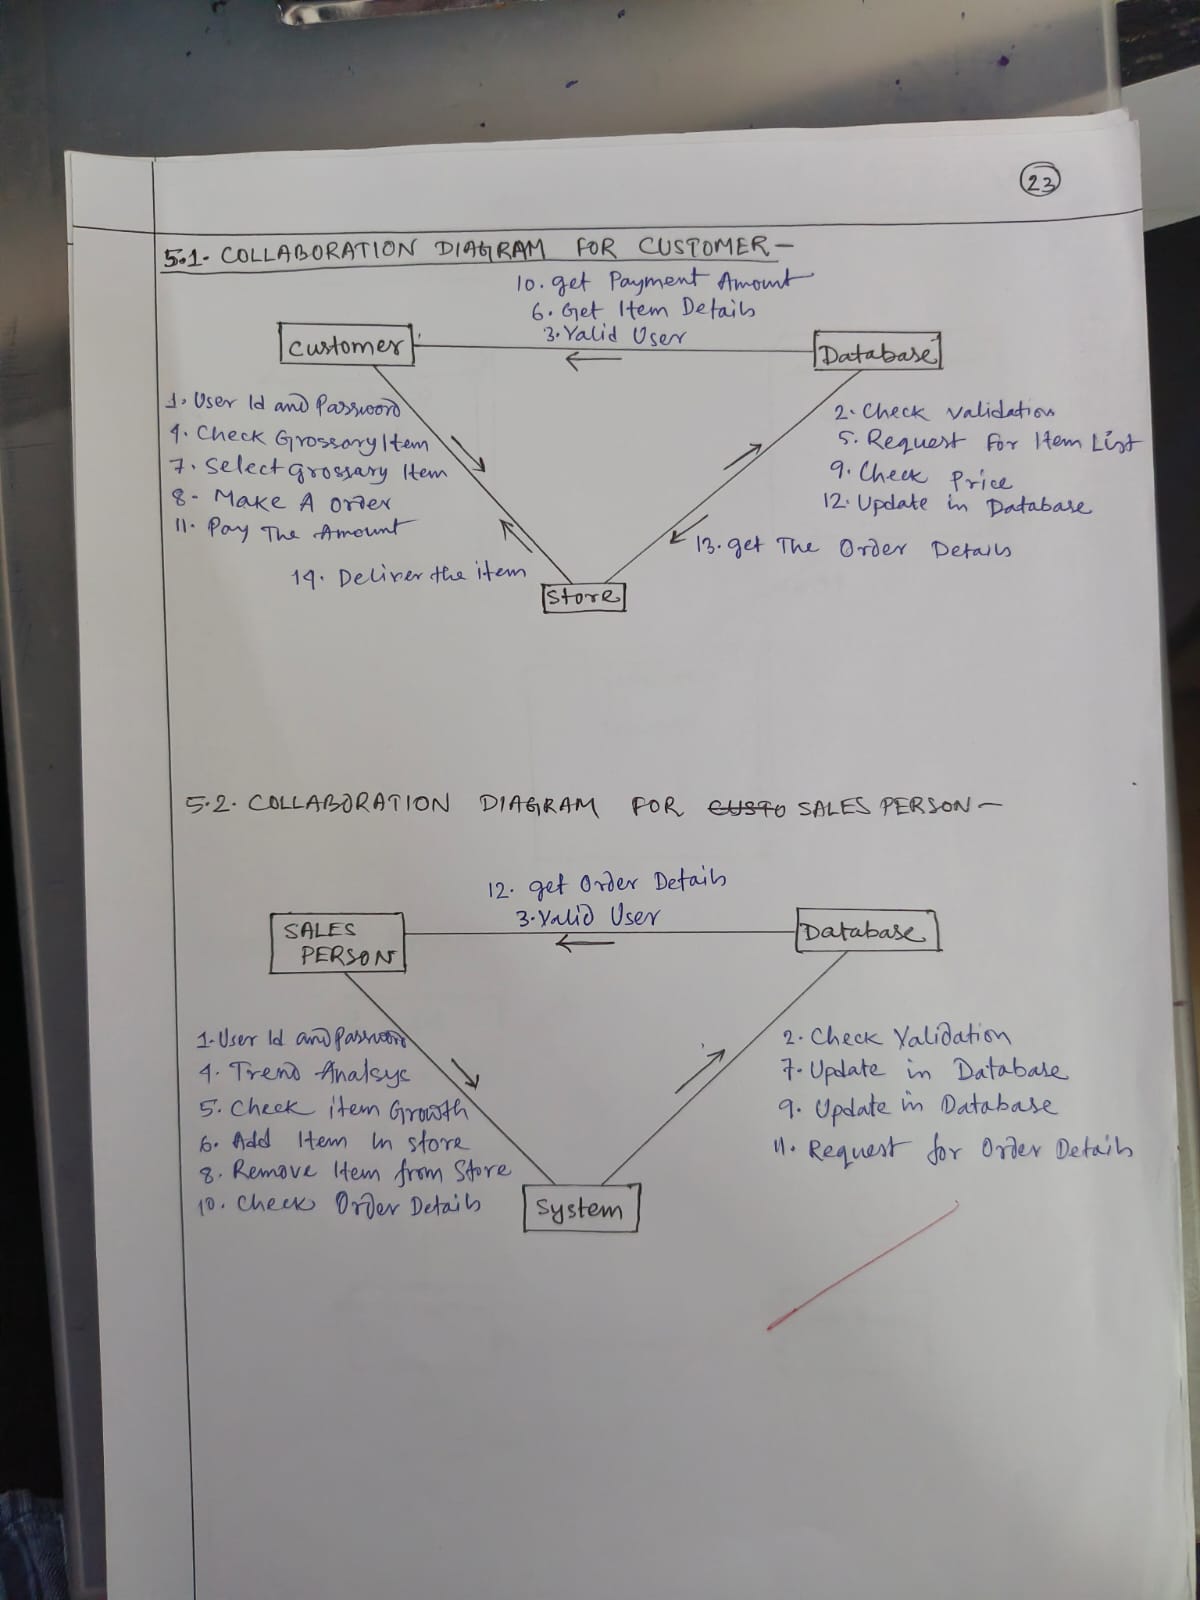 23
5.1. COLLABORATION DIAGRAM FOR CUSTOMER -
10. get Payment Amount
6. Get Item Details
3. Valid User
Customer
Database
1. User Id and Password
4. Check Grossory Item
7. Select grossary Item
8- Make A order
11. Pay The Amount
14. Deliver the item
2. Check validation
5. Request For Item List
9. Check Price
12. Update in Database
13. get The Order Details
Store
5.2. COLLABORATION DIAGRAM FOR CUSTO SALES PERSON -
12. get Order Details
3. Valid User
SALES
PERSON
Database
1. User Id and Password
4. Trend Analsyc
5. Check item Growth
6. Add Item In store
8. Remove Item from Store
10. Check Order Details
2. Check Validation
7. Update in Database
9. Update in Database
11. Request for Order Details
System